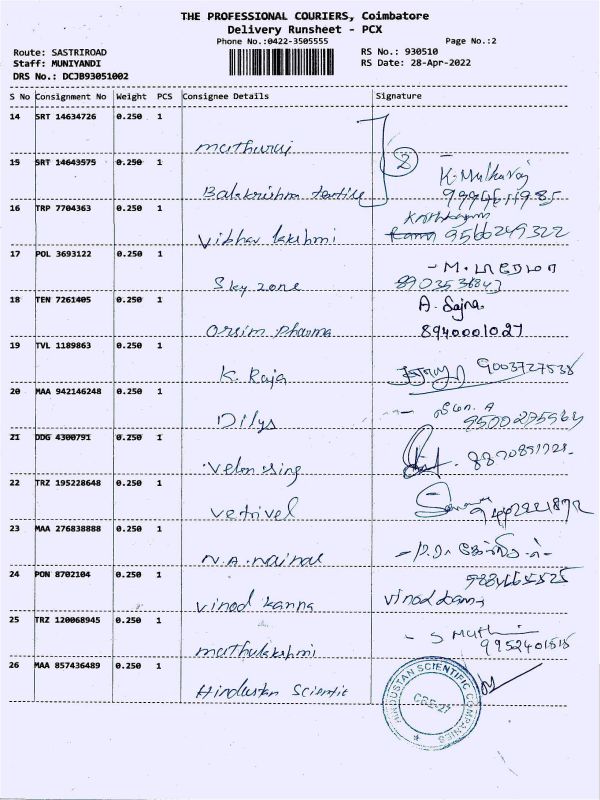 THE PROFESSIONAL COURIERS, Coimbatore
Delivery Runsheet - PCX
Phone No.:0422-3505555
Page No.:2
Route: SASTRIROAD
RS No.: 930510
Staff: MUNIYANDI
RS Date: 28-Apr-2022
DRS No.: DCJB93051002
S No Consignment No Weight PCS Consignee Details Signature
14 SRT 14634726 0.250 1
muthuraj
2
15 SRT 14643575 0.250 1
Balakrishna textile
16 TRP 7704363 0.250 1
Vibhav lakshmi 9566249322
17 POL 3693122 0.250 1
Sky zone
18 TEN 7261405 0.250 1
A. Sajna
Orsim pharma 8940001027
19 TVL 1189863 0.250 1
K. Raja 9003727538
20 MAA 942146248 0.250 1
Dilys
21 DDG 4300791 0.250 1
22 TRZ 195228648 0.250 1
Vetrivel
23 MAA 276838888 0.250 1
24 PON 8702104 0.250 1
Vinod Kanna
25 TRZ 120068945 0.250 1
Muthulakshmi 9952401515
26 MAA 857436489 0.250 1
Hindustan Scientific
HINDUSTAN SCIENTIFIC COMPANIES
CBE-27